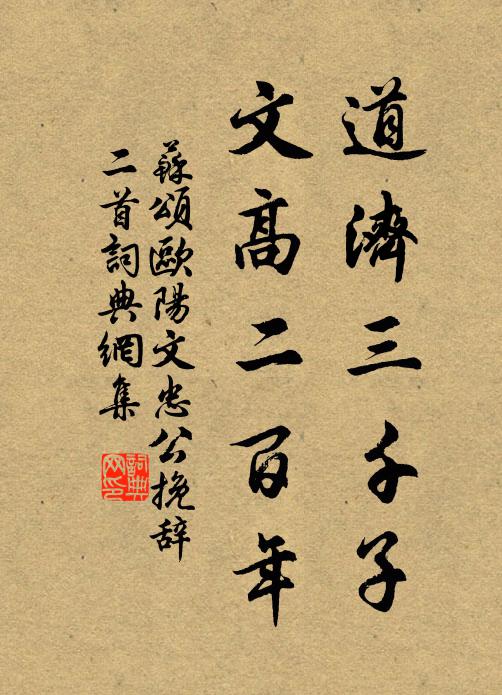 道濟三千子
文高二百年
蘇頌歐陽文忠公挽辞
二首詞典網集
詞典
网印